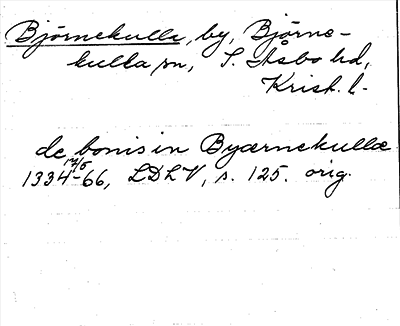 Björnekulla, by, Björne-
kulla sn, S. Åsbo hd,
Krist. l.
de bonis in Byærnekullæ
1334 17/5 -66, LDLV, s. 125. orig.